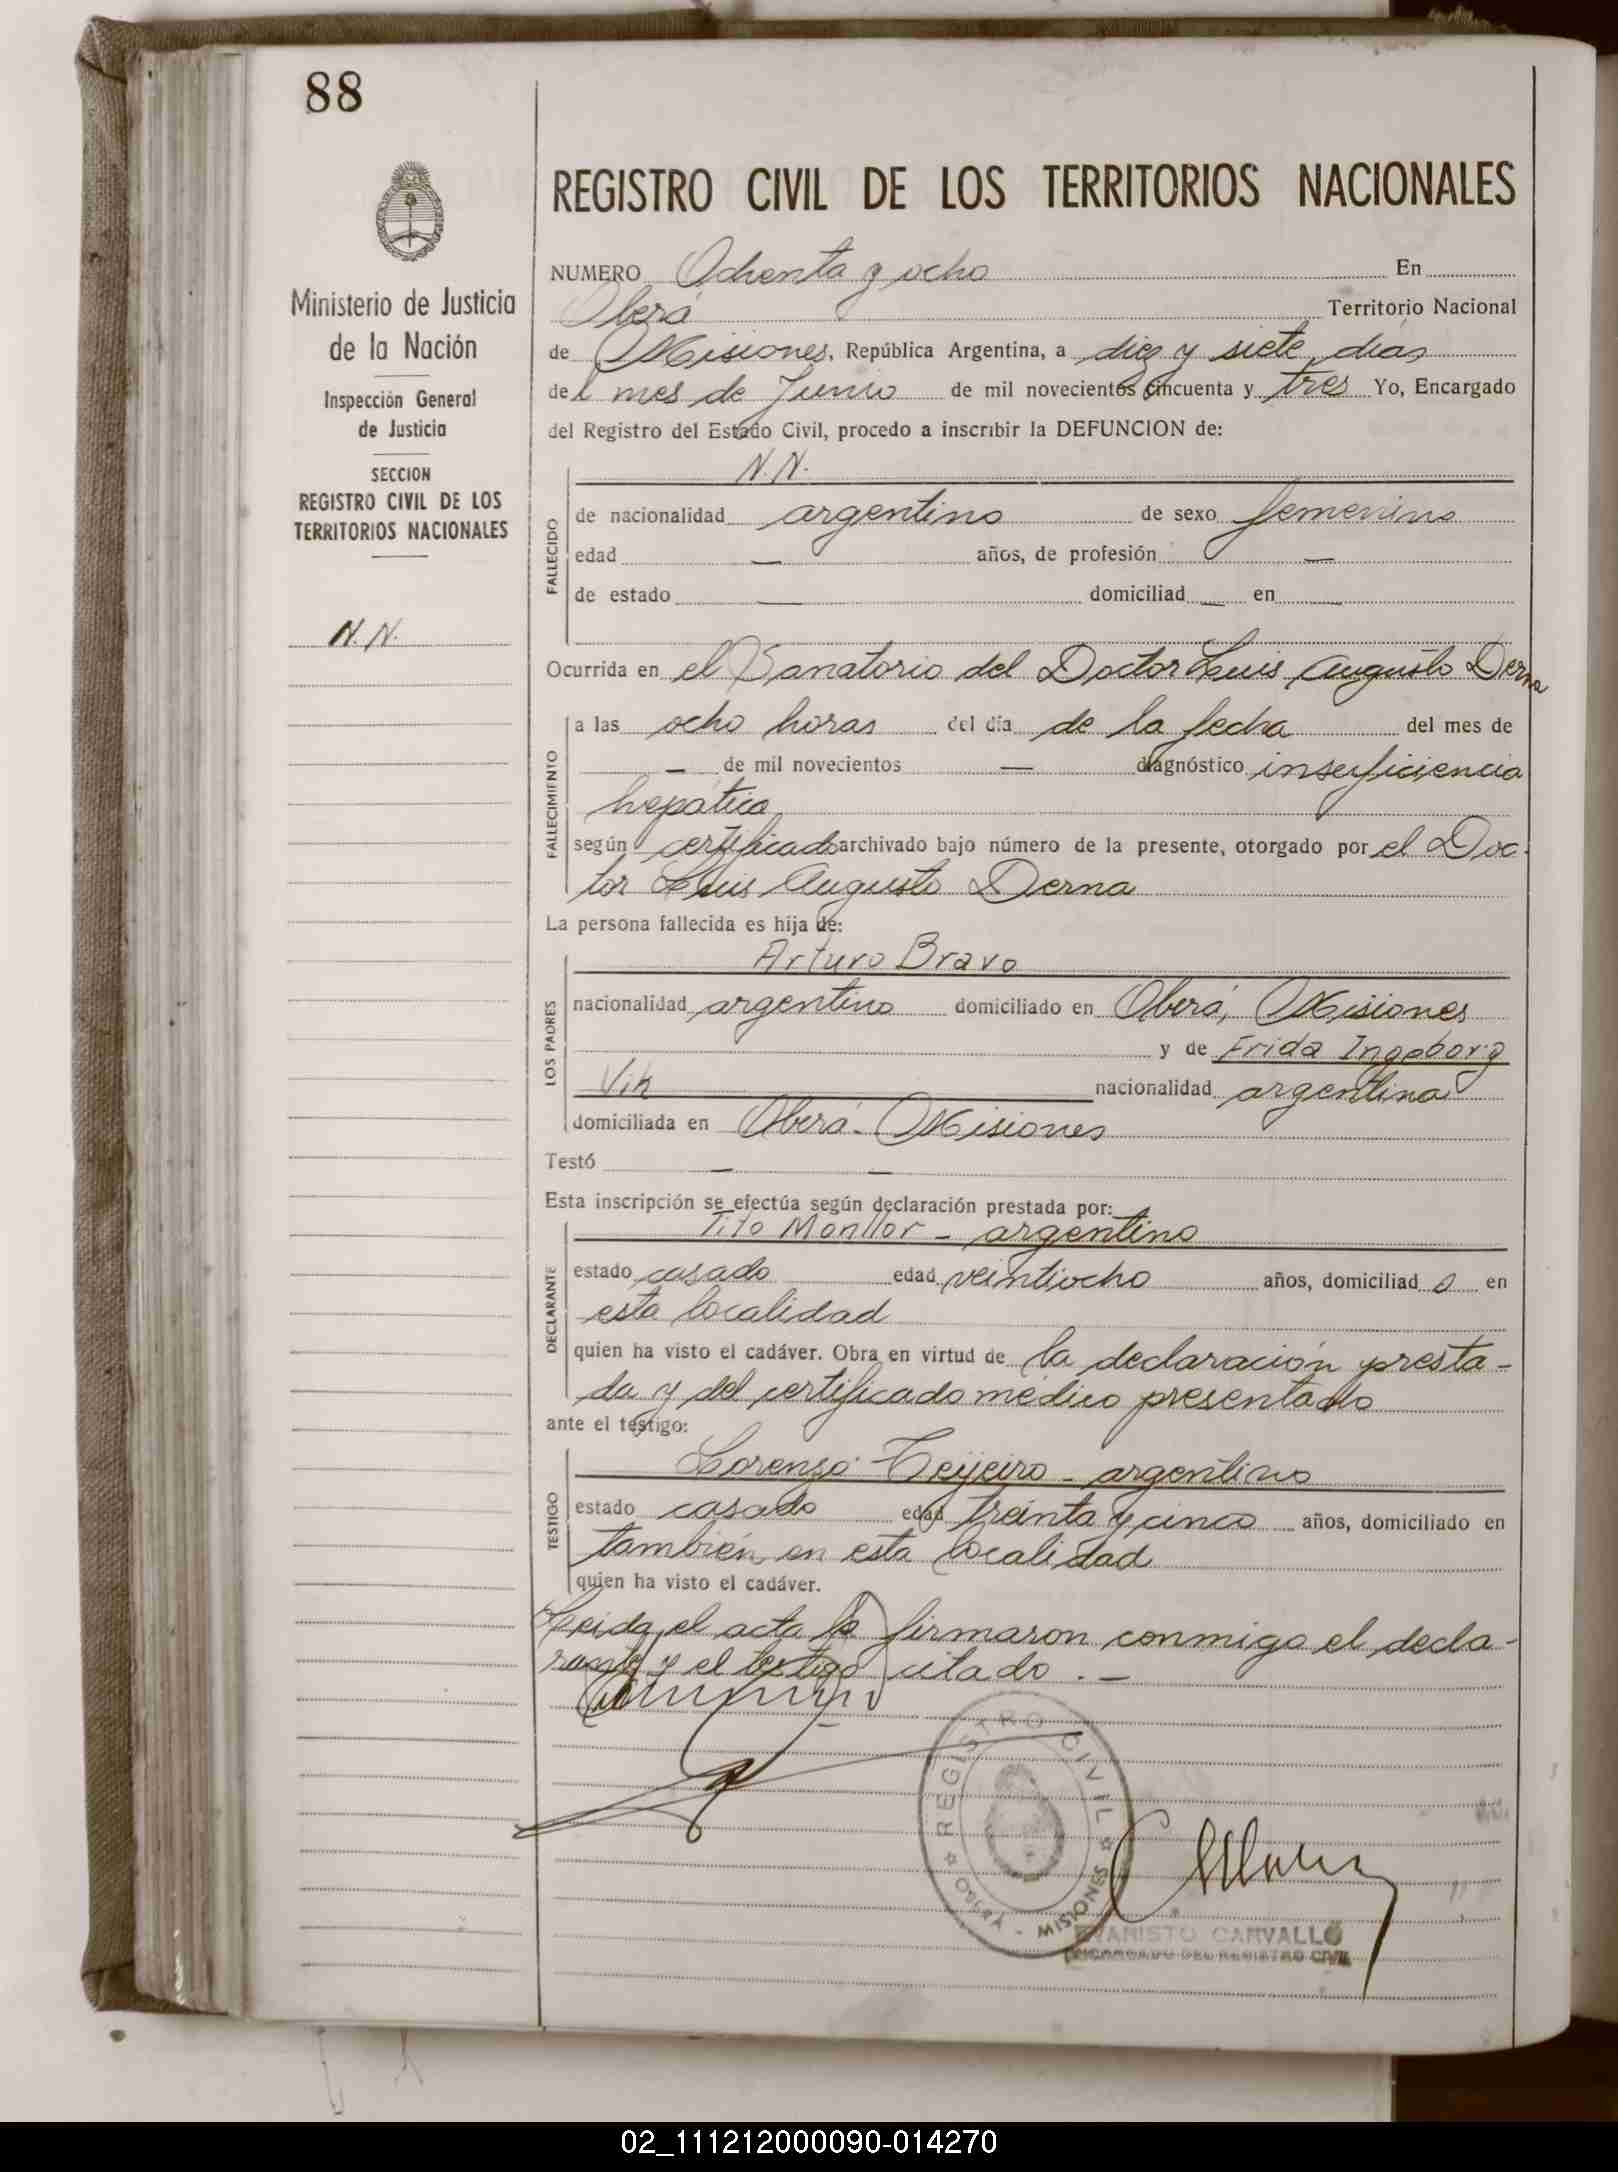 88
REGISTRO CIVIL DE LOS TERRITORIOS NACIONALES
Ministerio de Justicia
de la Nación
Inspección General
de Justicia
SECCION
REGISTRO CIVIL DE LOS
TERRITORIOS NACIONALES
N. N.
NUMERO Ochenta y ocho En
Oberá Territorio Nacional
de Misiones, República Argentina, a diez y siete días
del mes de Junio de mil novecientos cincuenta y tres Yo, Encargado
del Registro del Estado Civil, procedo a inscribir la DEFUNCION de:
N. N.
FALLECIDO
de nacionalidad argentino de sexo femenino
edad — años, de profesión —
de estado — domiciliad — en —
Ocurrida en el Sanatorio del Doctor Luis Augusto Derna
FALLECIMIENTO
a las ocho horas del día de la fecha del mes de
— de mil novecientos — diagnóstico insuficiencia
hepática
según certificado archivado bajo número de la presente, otorgado por el Doc-
tor Luis Augusto Derna
La persona fallecida es hija de:
LOS PADRES
Arturo Bravo
nacionalidad argentino domiciliado en Oberá, Misiones
y de Frida Ingeborg
Vik nacionalidad argentina
domiciliada en Oberá - Misiones
Testó — —
Esta inscripción se efectúa según declaración prestada por:
DECLARANTE
Tito Monllor - argentino
estado casado edad veintiocho años, domiciliado en
esta localidad
quien ha visto el cadáver. Obra en virtud de la declaración presta-
da y del certificado médico presentado
ante el testigo:
TESTIGO
Lorenzo Teijeiro - argentino
estado casado edad treinta y cinco años, domiciliado en
también en esta localidad
quien ha visto el cadáver.
Leida el acta la firmaron conmigo el decla-
rante y el testigo citado. —
REGISTRO CIVIL
OBERÁ - MISIONES
EVARISTO CARVALLO
ENCARGADO DEL REGISTRO CIVIL
02_111212000090-014270